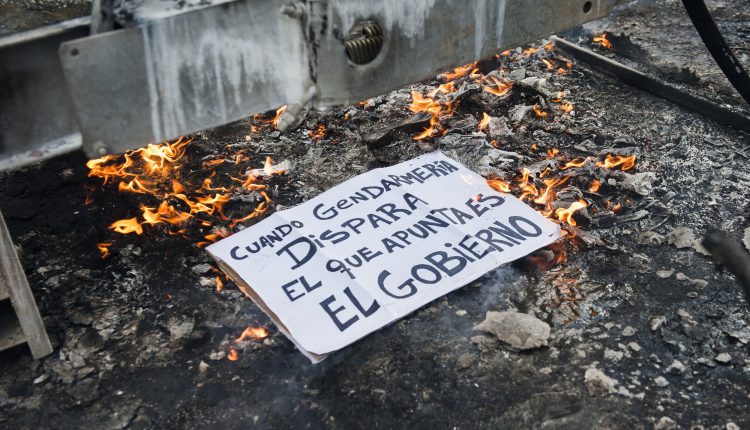 CUANDO GENDARMERÍA
DISPARA
EL QUE APUNTA ES
EL GOBIERNO